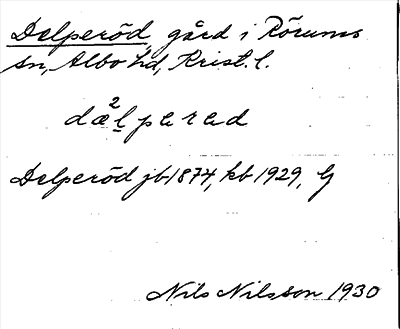 Delperöd, gård i Rörums
sn, Albo hd, Krist. l.
dæ²lpered
Delperöd jb 1874, kb 1929, G
Nils Nilsson 1930